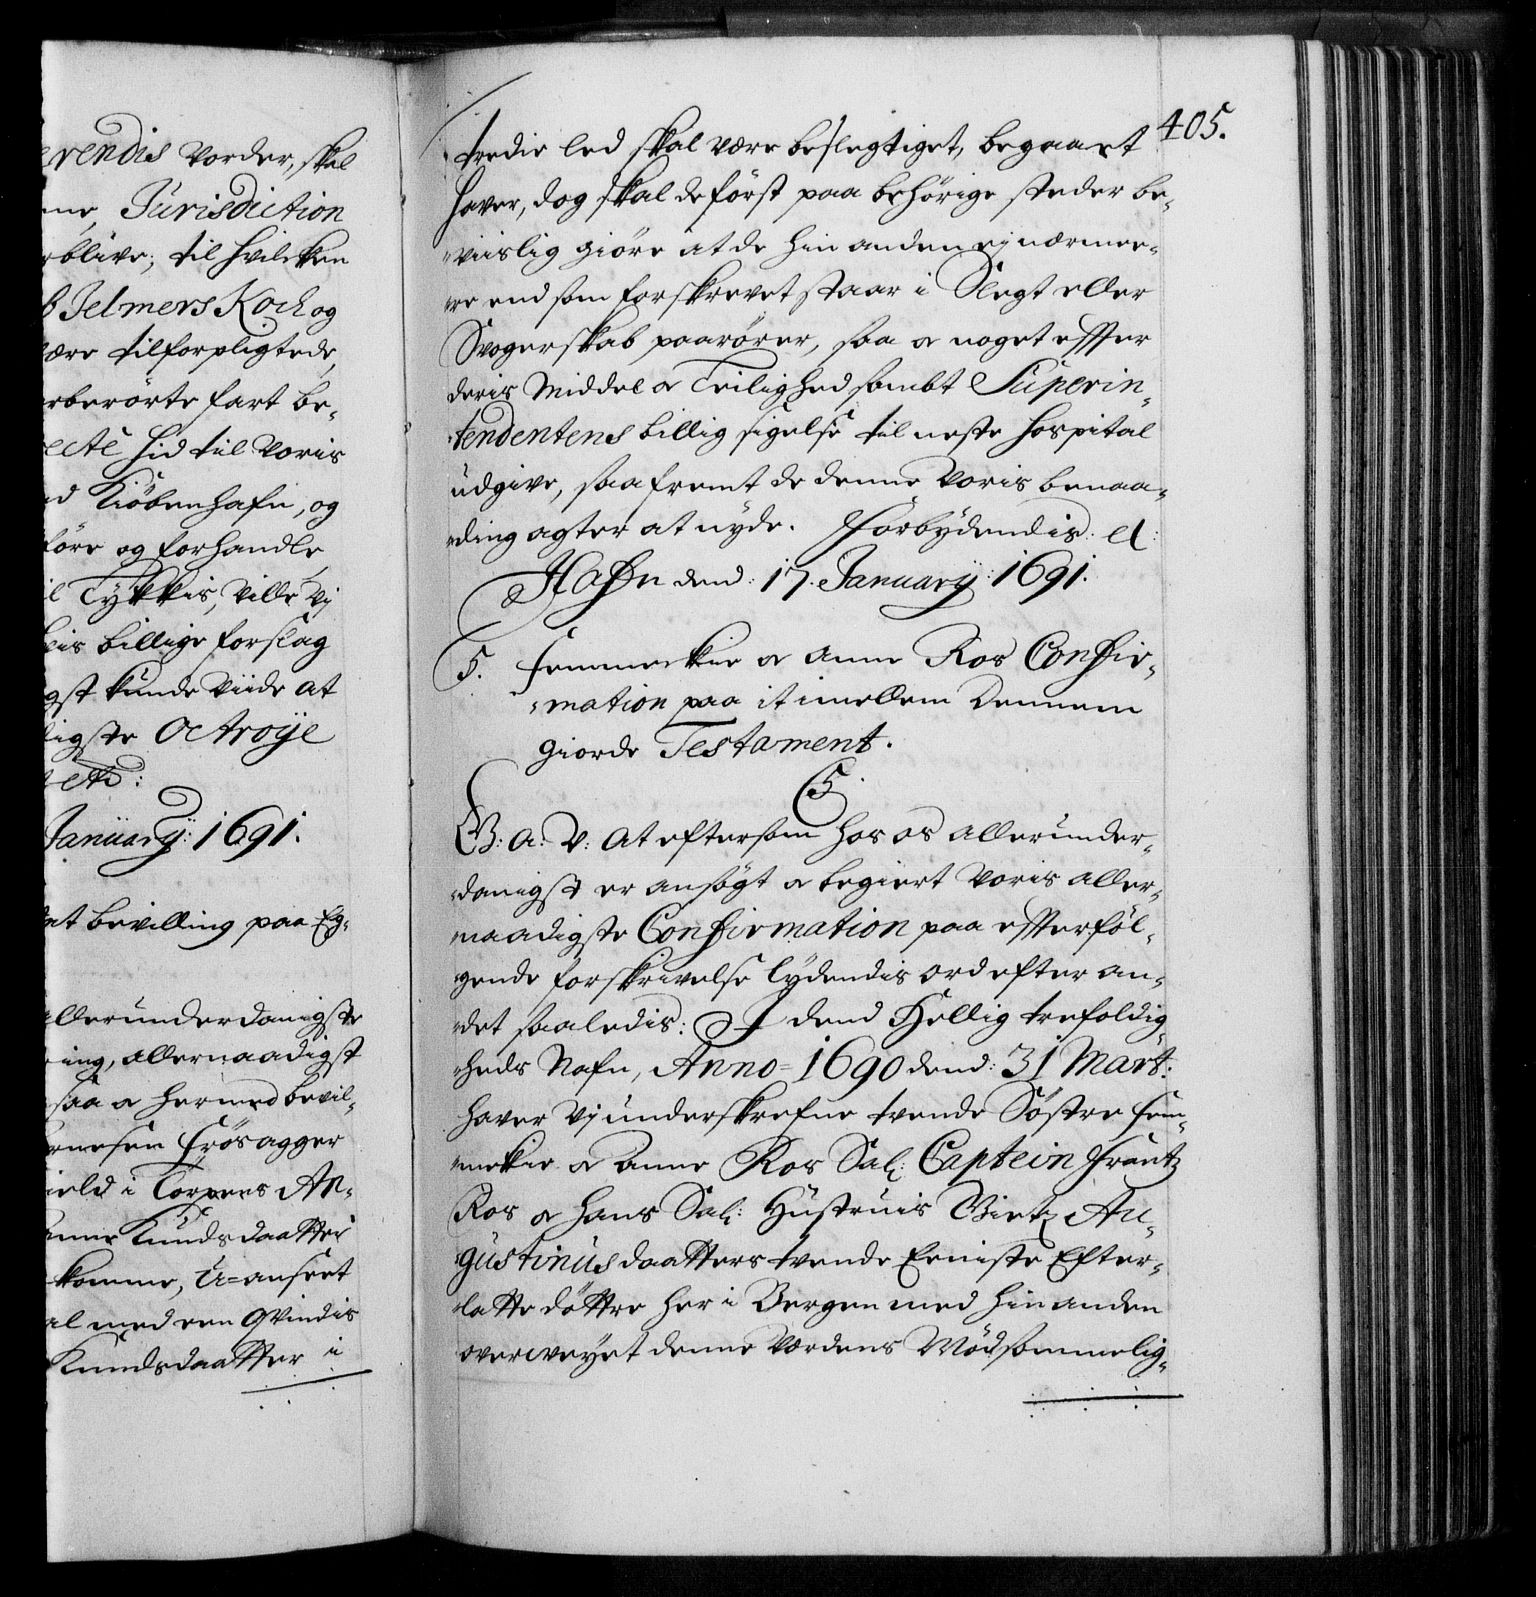 vendis vorder, skal
Jurisdiction
blive; til hvilcken
Jelmers Koch og
være tilforpligtede,
berørte fart be-
hid til Voris
Kiöbenhafn, og
føre og forhandle
Tÿkkis, ville vj
billige forslag
kunde viide at
ligste Octroÿe
etc:
Januarÿ: 1691.
bevilling paa Eg-
allerunderdanigste
ing, allernaadigst
saa oc hermed bevil-
Frösagger
i Torpens An-
Knudsdaatter
komme, U=anseet
med een Qvindis
Knudsdaatter i
405.
tredie led skal være beslegtiget, begaaet
hafver, dog skal de först paa behörige steder be-
viislig giöre at de hin anden ej nærmee-
re end som forskrevet staar i Slegt eller
Svogerskab paarörer, saa oc noget effter
deris Middel oc Leilighed sambt Superin-
tendentens billig sigelse til neste Hospital
udgive, saa fremt de denne Voris benaa-
ding agter at nyde. Forbÿdendis: etc:
Hafn dend: 17. Januarÿ: 1691.
5. Femmechie oc Anne Ros Confir-
mation paa it imellem Dennem
giorde Testament.
5.
G: A: V: At eftersom hos os allerunder-
danigst er ansögt oc begiert Voris aller-
naadigste Confirmation paa effterföl-
gende forskrivelse lÿdendis ord efter an-
det saaledis: I dend Hellig trefoldig-
heds Nafn, Anno=1690 dend: 31 Mart:
hafver Vj underskrefne tvende Söstre Fem-
mekie oc Anne Ros Sal: Captein Frantz
Ros oc hans Sal: Hüstruis Birte Au-
gustinus daatters tvende Eeniste Efter-
latte döttre her i Bergen med hin anden
overveÿet denne Verdens Mödsommelig-